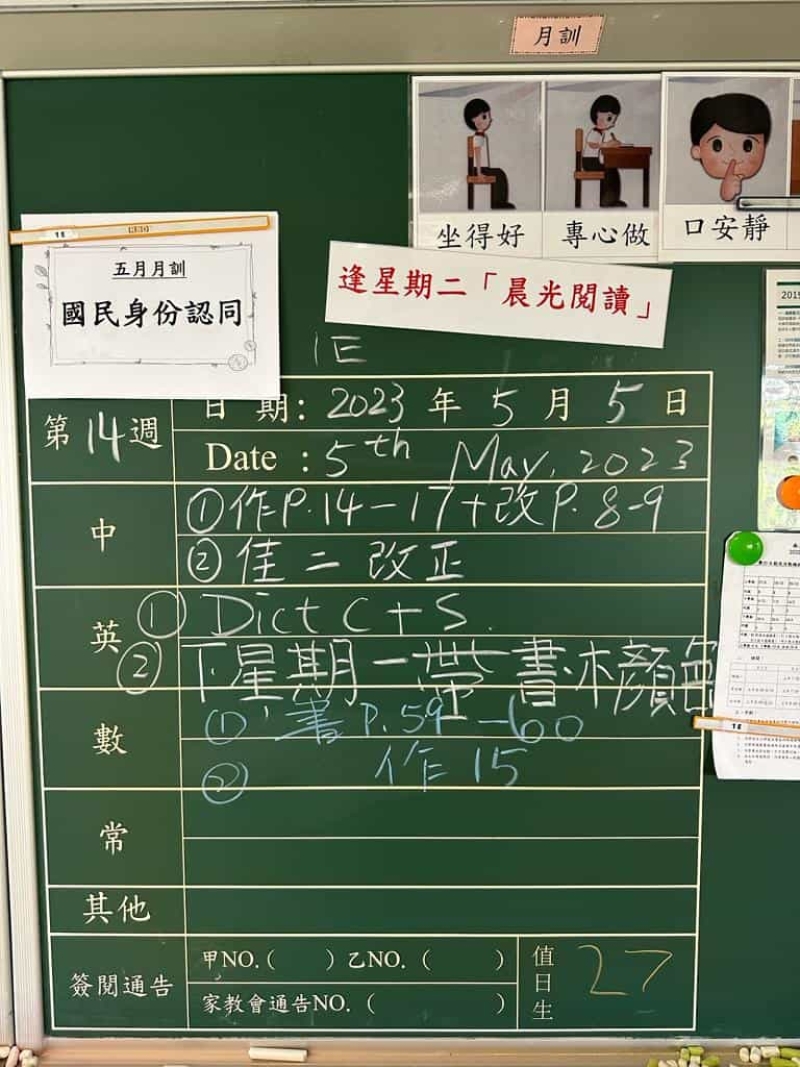 月訓
坐得好 專心做 口安靜
五月月訓
國民身份認同
逢星期二「晨光閱讀」
1E
第14週
日期: 2023 年 5 月 5 日
Date : 5th May, 2023
中
①作P.14-17+改P.8-9
②佳二改正
英
① Dict C+S.
②下星期一帶書·木顏色
數
① 書P.59-60
② 作15
常
其他
簽閱通告
甲NO.( ) 乙NO. ( )
家教會通告NO. ( )
值日生 27